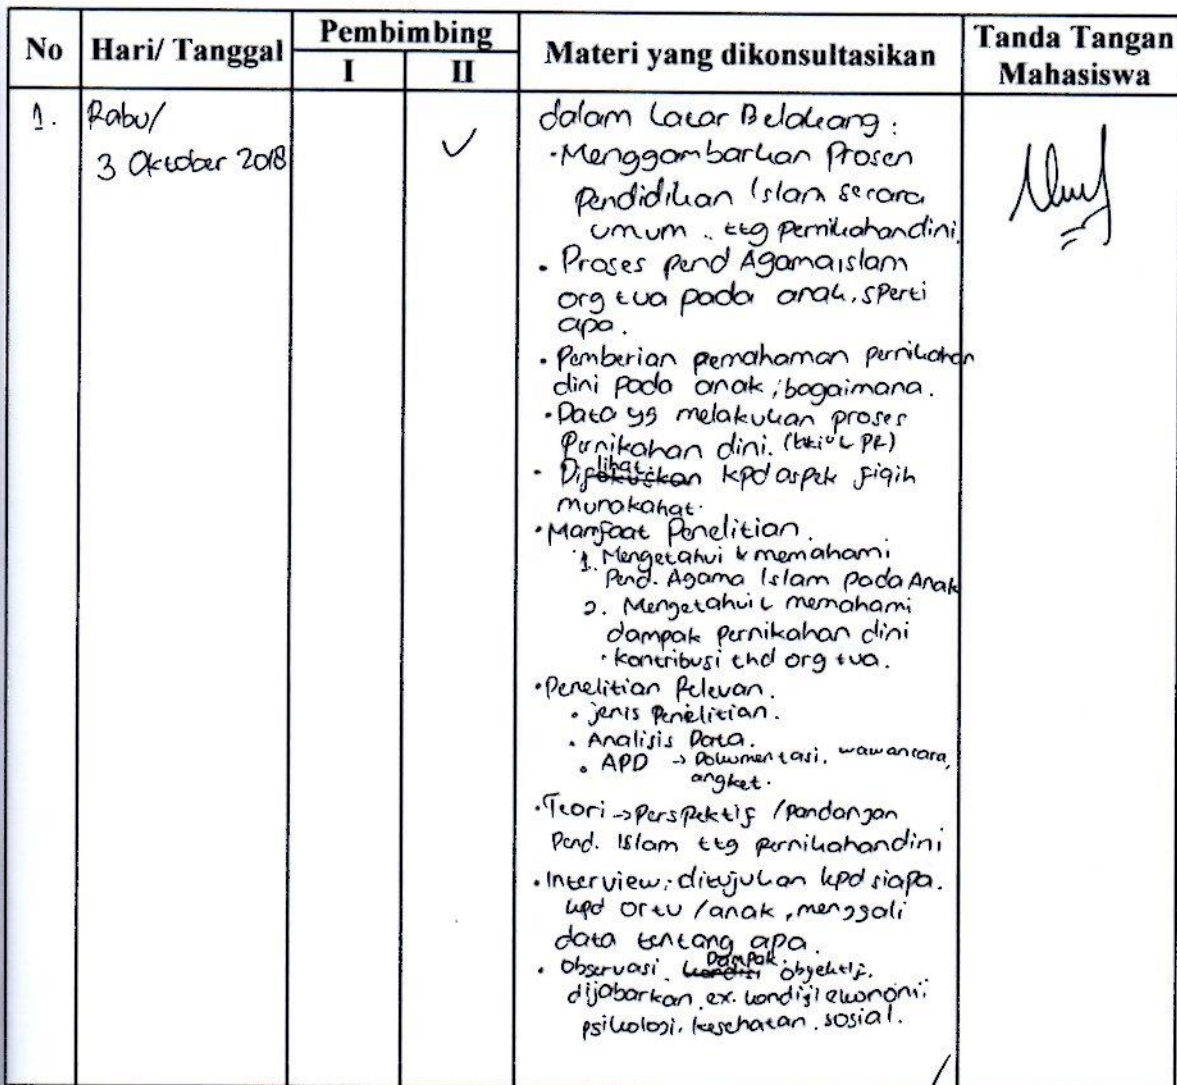 No Hari/ Tanggal Pembimbing Materi yang dikonsultasikan Tanda Tangan Mahasiswa
I II
1. Rabu/
3 Oktober 2018
✓
dalam Latar Belakang :
· Menggambarkan Prosen
Pendidikan Islam secara
umum . ttg pernikahan dini.
· Proses pend Agama islam
org tua pada anak, sperti
apa.
· Pemberian pemahaman pernikahan
dini pada anak, bagaimana.
· Data yg melakukan proses
Pernikahan dini.
· Dilihat kpd aspek fiqih
munakahat.
· Manfaat Penelitian.
1. Mengetahui & memahami
Pend. Agama Islam pada Anak
2. Mengetahui & memahami
dampak pernikahan dini
· kontribusi thd org tua.
· Penelitian Relevan.
· jenis Penelitian.
· Analisis Data.
· APD → Dokumentasi, wawancara,
angket.
· Teori → Perspektif / Pandangan
Pend. Islam ttg pernikahan dini
· Interview; ditujukan kpd siapa.
kpd ortu / anak, menggali
data tentang apa.
· Observasi. Dampak obyektif.
dijabarkan ex. kondisi ekonomi,
psikologi, kesehatan, sosial.